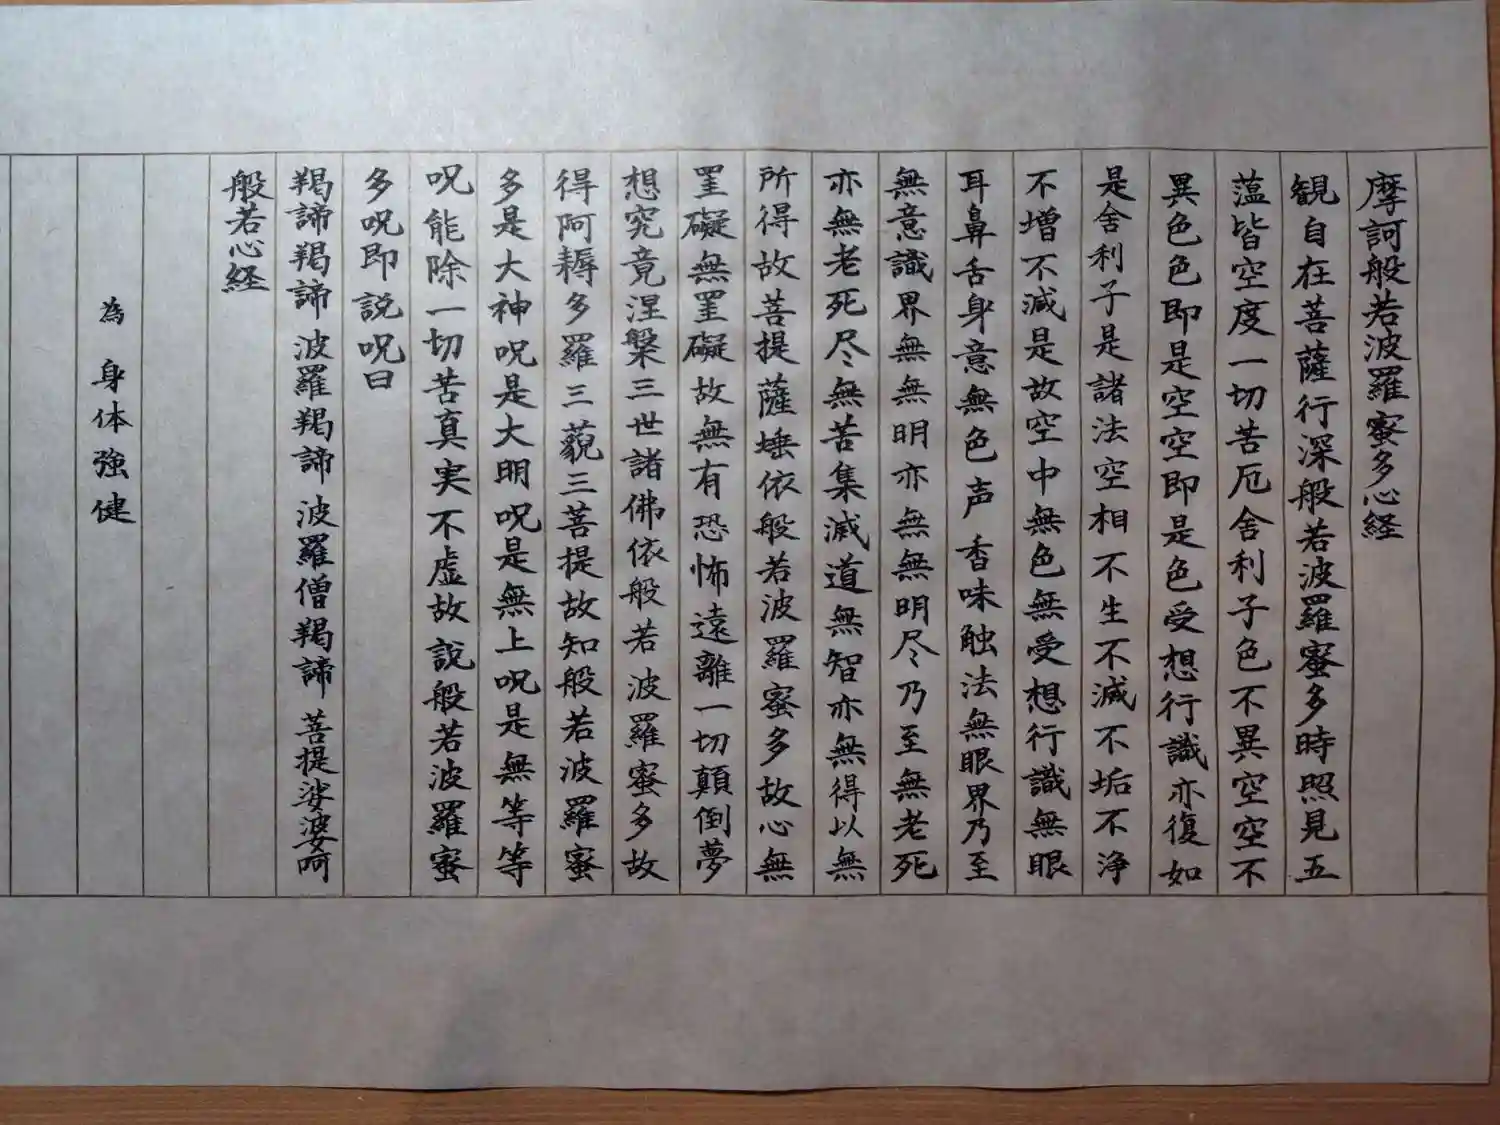 摩訶般若波羅蜜多心経
観自在菩薩行深般若波羅蜜多時照見五
薀皆空度一切苦厄舎利子色不異空空不
異色色即是空空即是色受想行識亦復如
是舎利子是諸法空相不生不滅不垢不浄
不増不減是故空中無色無受想行識無眼
耳鼻舌身意無色声香味触法無眼界乃至
無意識界無無明亦無無明尽乃至無老死
亦無老死尽無苦集滅道無智亦無得以無
所得故菩提薩埵依般若波羅蜜多故心無
罣礙無罣礙故無有恐怖遠離一切顛倒夢
想究竟涅槃三世諸佛依般若波羅蜜多故
得阿耨多羅三藐三菩提故知般若波羅蜜
多是大神呪是大明呪是無上呪是無等等
呪能除一切苦真実不虚故説般若波羅蜜
多呪即説呪曰
羯諦羯諦波羅羯諦波羅僧羯諦菩提娑婆呵
般若心経
為 身体強健